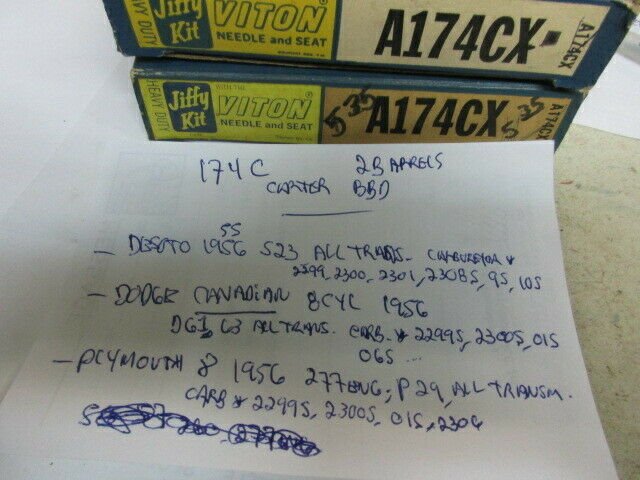 HEAVY DUTY
Jiffy Kit
VITON®
NEEDLE and SEAT
A174CX
A174CX
HEAVY DUTY
Jiffy Kit
WITH THE
VITON®
NEEDLE and SEAT
535
A174CX
535
A174CX
174C 2 BARRELS
CARTER BBD
55
- DESOTO 1956 S23 ALL TRANS. CARBURETOR *
2299, 2300, 2301, 2308S, 9S, 10S
- DODGE CANADIAN 8CYL 1956
DG1, 63 ALL TRANS. CARB. * 2299S, 2300S, 01S
06S ...
- PLYMOUTH 8 1956 277 ENG; P29, ALL TRANSM.
CARB * 2299S, 2300S, 01S, 2306